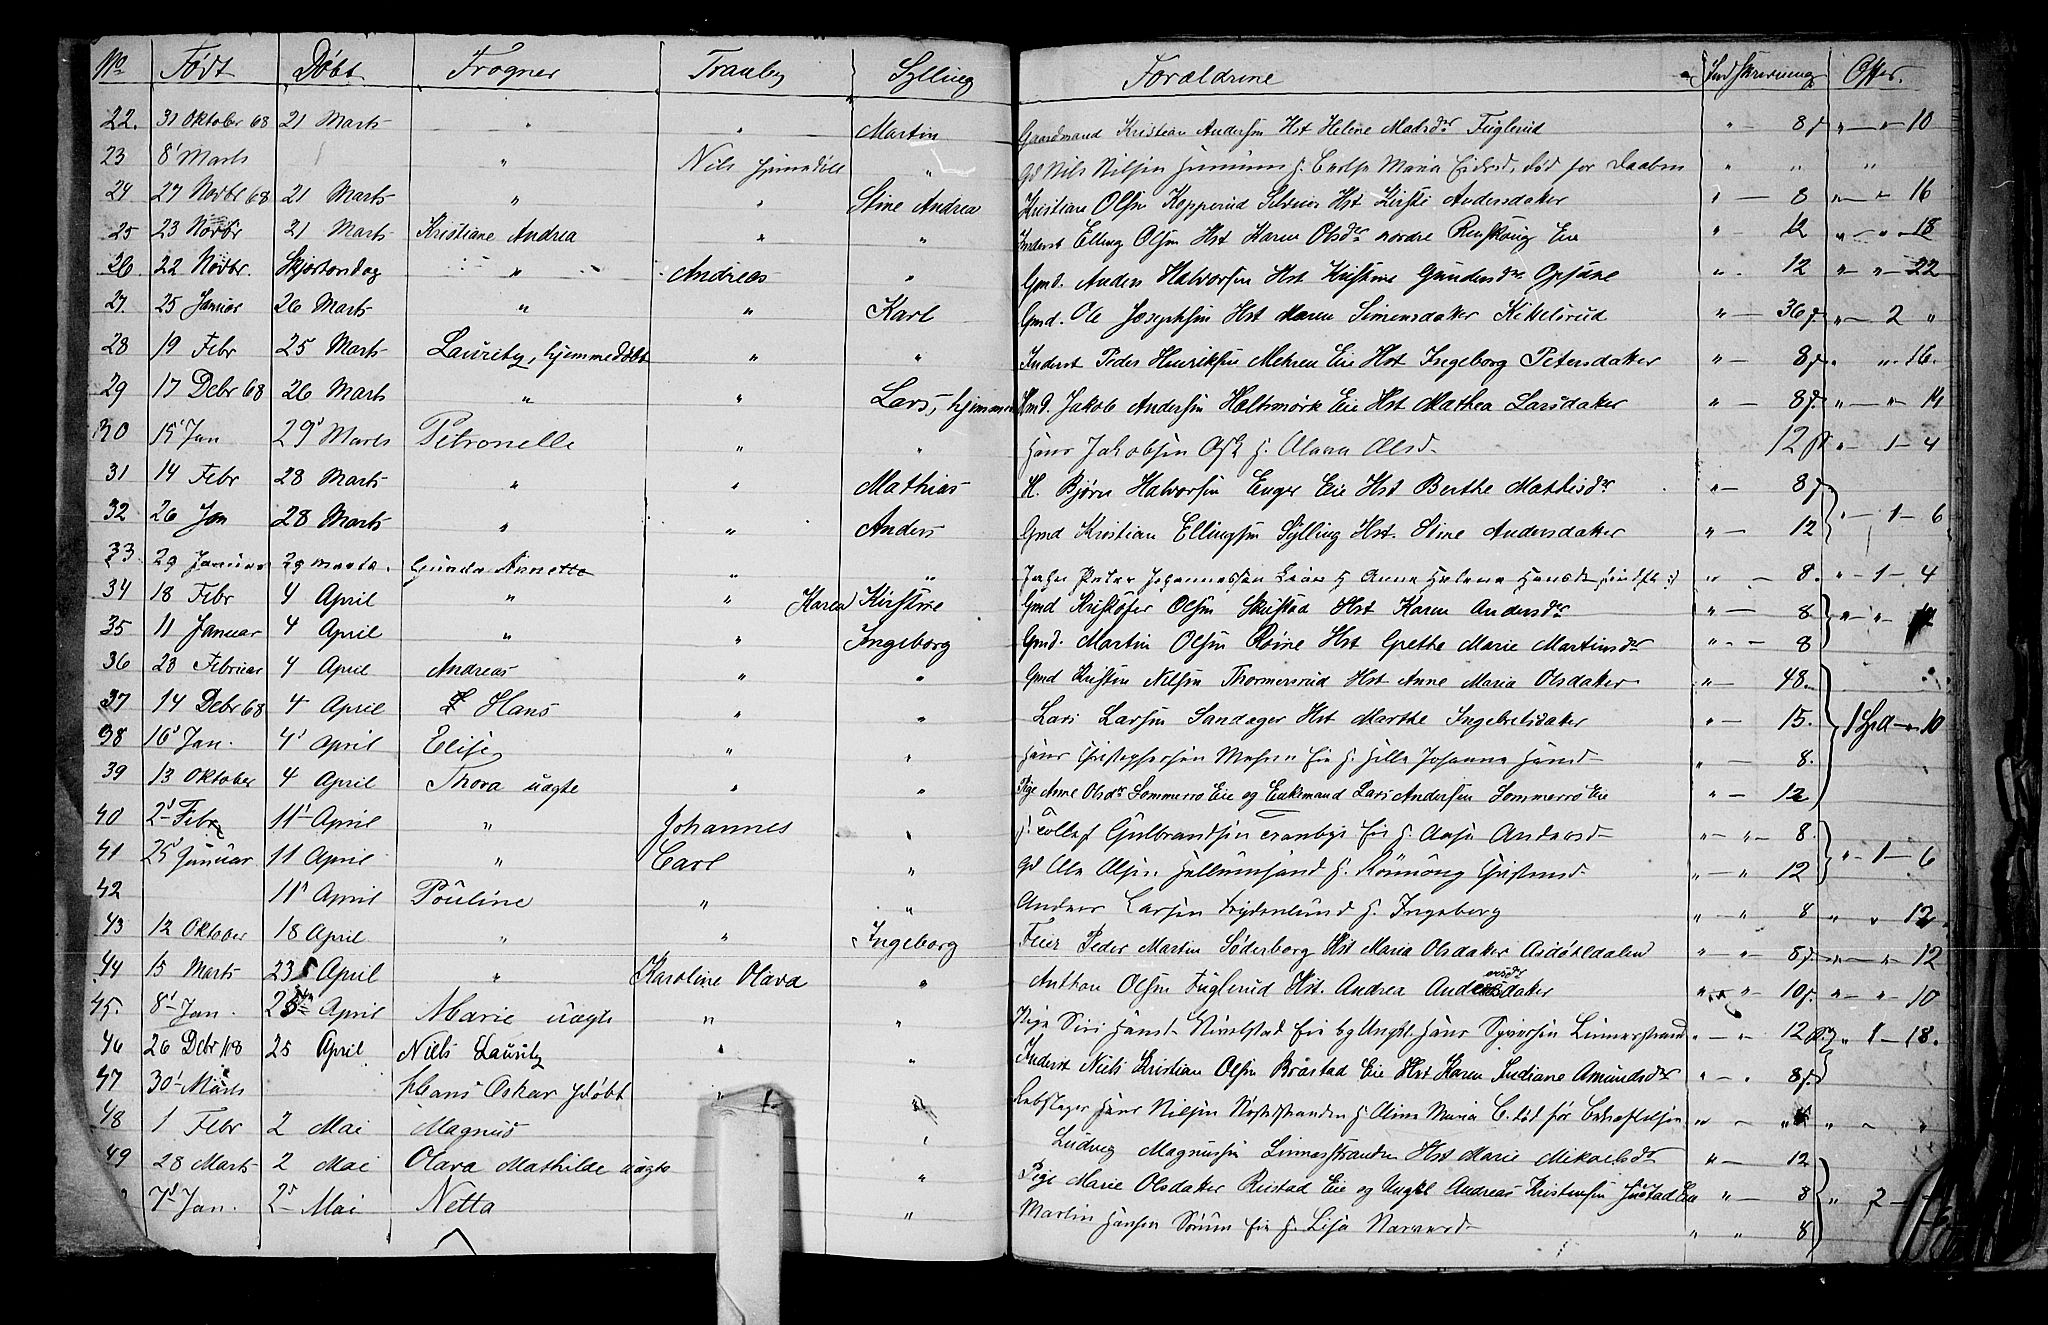 No Født Døbt Frogner Tranby Sylling Forældrene Indskrivning Offer.
22. 31 Oktober 68 21 Marts " " Martin Gaardmand Kristian Andersen Hst Helene Madsdr Fuglerud " 8 " " 10
23 8' Marts " Nils hjemmedøbt " Gd Nils Nilsen H. Maria død før Daaben " " "
24 27 Novbr 68 21 Marts " " Stine Andrea Kristian Olsen Kopperud Hst Kirsti Andersdatter " 8 " " 16
25 23 Novbr 21 Marts Kristiane Andrea " " Inderst Elling Olsen Hst Karen Olsdr nordre Renskoug Eie " 12 " " 18
26 22 Novbr. Skjærtorsdag " Andreas " Gmd. Anders Halvorsen Hst Kristine Gundersdr Opsane " 12 " " 22
27. 25 Januar 26 Marts " " Karl Gmd. Ole Josephsen Hst Maren Simensdatter Kikelsrud " 36 " 2 "
28 19 Febr 25 Marts Lauritz, hjemmedøbt " " Inderst Peder Henriksen Mehren Eie Hst Ingeborg Petersdatter " 8 " " 16.
29 17 Debr 68 26 Marts " " Lars, hjemme Hmd. Jakob Andersen Holtsmørk Eie Hst Mathea Larsdatter " 8 " " 14
30 15' Jan 29' Marts Petronelle " " Hans Jakobsen Ask H. Olava Olsd. 12 " 1 4
31 14 Febr 28 Marts " " Mathias H. Bjørn Halvorsen Enger Eie Hst Berthe Mathisdr " 8
32 26 Jan 28 Marts " " Anders Gmd Kristian Ellingsen Sylling Hst. Stine Andersdatter " 12 " 1 6
33. 29 Januar 29 marts. Gunda Annette " " Peter Johannessen Lier H Anna Helene Hansd " 8. " 1 4
34 18 Febr 4 April " " Karen Kirstine Gmd Kristofer Olsen Skustad Hst Karen Andersdr " 8
35 11 Januar 4 April " " Ingeborg Gmd. Martin Olsen Røine Hst Grethe Marie Martinsdr " 8 " "
36 28 Februar 4 April Andreas " " Gmd Kristen Nilsen Thormersrud Hst Anne Maria Olsdatter " 48
37 14 Debr 68 4 April Hans " " Lars Larsen Sandager Hst Marthe Ingebretsdatter " 15. 1 Spd " 10
38 16' Jan. 4' April Elise " " Hans Christophersen Eie H. Johanne Hansd " 8.
39 13 Oktober 4 April Thora uægte " " Pige Anne Olsdr Sommerro Eie og Enkemand Lars Andersen Sommerro Eie " 12
40 2' Febr 11' April " Johannes " H. Tollef Gulbrandsen Tranbys Eie H. Aase Andersd " " 8.
41 25' Januar 11 April " Carl " Gd Ole Olsen H. Rønnoug Christensd " " 12 " 1 6
42 11' April Pouline " " Anders Larsen H. Ingeborg " " 8 " " 12
43 12 Oktober 18 April " " Ingeborg Feier Peder Martin Søderborg Hst Maria Olsdatter Asdøldalen " " 8 " " 12
44 15 Marts 23 April " Karoline Olava " Anthon Olsen Fuglerud Hst. Andrea Andersdatter " " 10 " " 10
45. 8' Jan. 25 April Marie uægte " " Pige Siri Hansd Eie og Ungk. Hans Syversen Linnesstrand " " 12
46 26 Debr 68 25 April Niels Lauritz " " Inderst Niels Kristian Olsen Bråstad Eie Hst Karen Indiane Amundsdr " " 8 " 1 18.
47 30' Marts Hans Oskar hjdøbt " " Rebslager Hans Nilsen Nøstestranden H. Oline Maria C. død før Bekræftelsen " " " "
48 1 Febr 2 Mai Magnus " Ludvig Magnussen Linnesstranden Hst Marie Mikaelsdr " 12
49 28 Marts 2 Mai Olava Mathilde uægte " Pige Marie Olsdatter Rustad Eie og Ungkl Andreas Kristensen Justad Eie " 8 " 2
7' Jan. 2' Mai Netta " Martin Hansen Sørum Eie H. Lisa " " 8